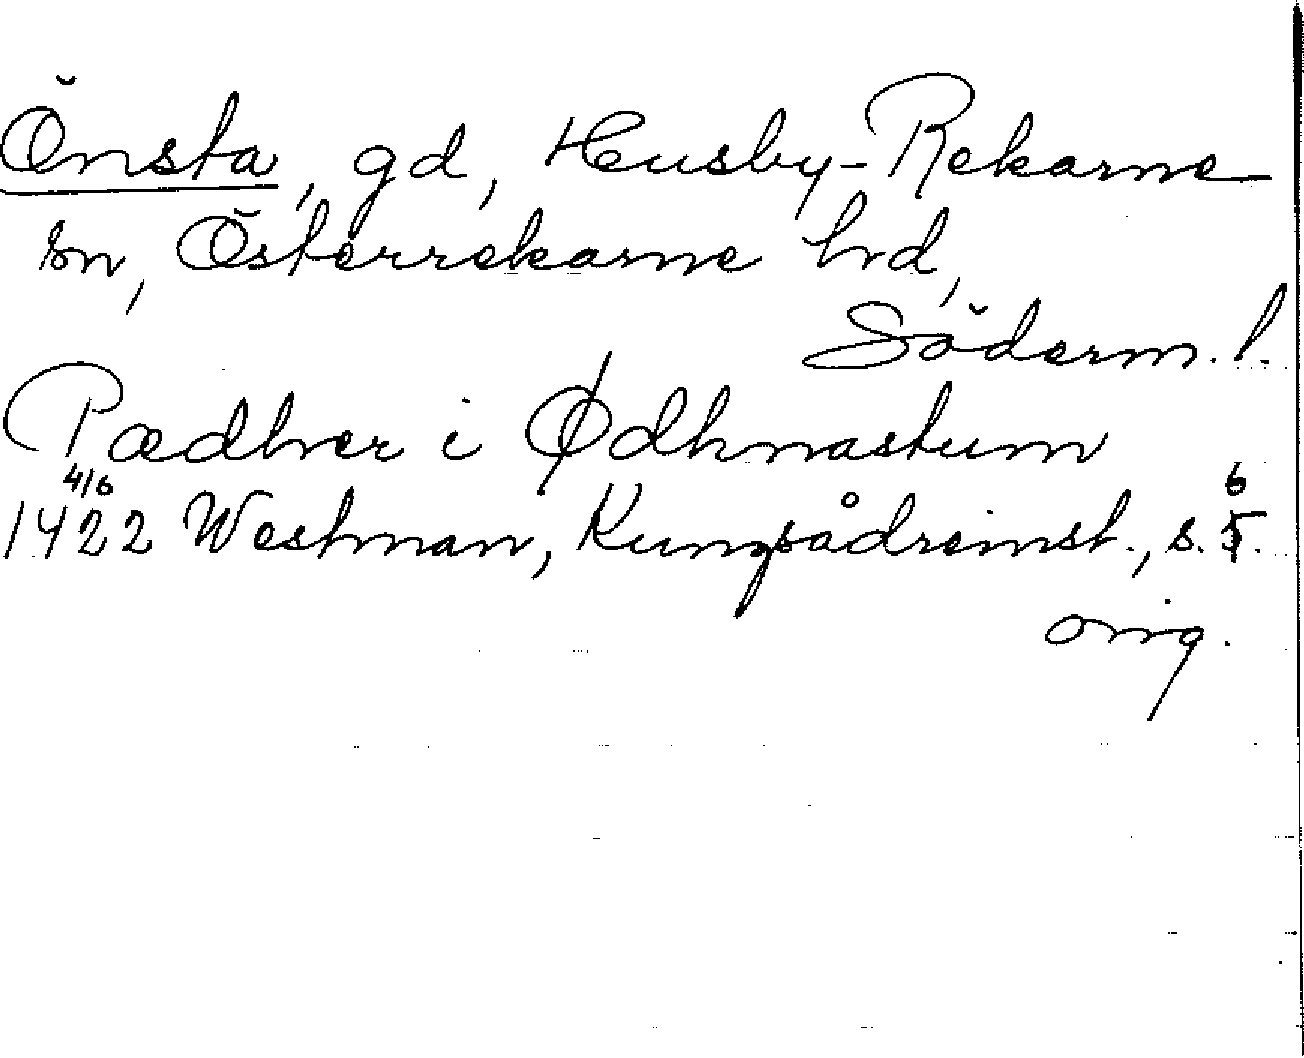 Önsta, gd, Husby-Rekarne
sn, Österrekarne hd,
Söderm. l.
Pædher i Ødhnastum
4/6
1422 Westman, Kungsådreinst., s. 6
orig.